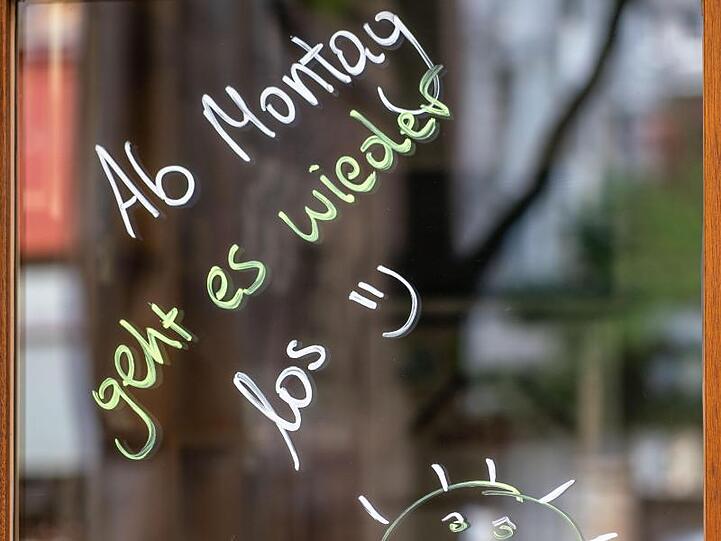 Ab Montag
geht es wieder
los =)